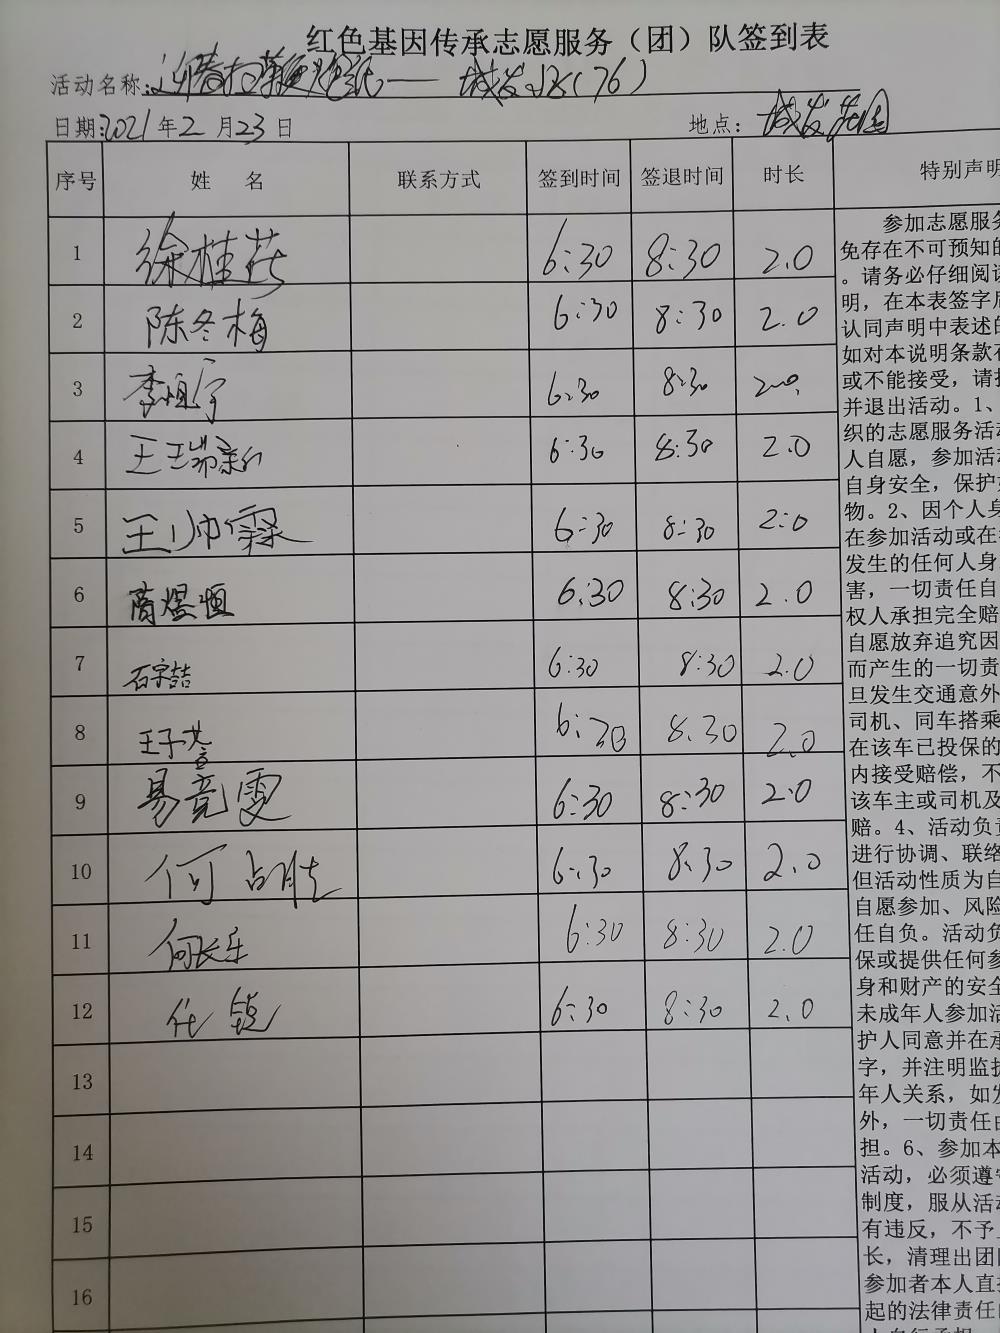 红色基因传承志愿服务（团）队签到表
活动名称：迎春扫 — 城发 (76)
日期：2021年2月23日 地点：城发
序号 姓 名 联系方式 签到时间 签退时间 时长 特别声明
1 徐桂花 6:30 8:30 2.0
2 陈冬梅 6:30 8:30 2.0
3 李恒宇 6:30 8:30 2.0
4 王瑞 6:30 8:30 2.0
5 王帅霖 6:30 8:30 2.0
6 商煜恒 6:30 8:30 2.0
7 石宗喆 6:30 8:30 2.0
8 王子萱 6:30 8:30 2.0
9 易竞雯 6:30 8:30 2.0
10 何占胜 6:30 8:30 2.0
11 何长乐 6:30 8:30 2.0
12 任锐 6:30 8:30 2.0
13
14
15
16
参加志愿服务
免存在不可预知的
。请务必仔细阅读
明，在本表签字后
认同声明中表述的
如对本说明条款有
或不能接受，请
并退出活动。1、
织的志愿服务活动
人自愿，参加活动
自身安全，保护
物。2、因个人身
在参加活动或在
发生的任何人身
害，一切责任自
权人承担完全赔
自愿放弃追究因
而产生的一切责
旦发生交通意外
司机、同车搭乘
在该车已投保的
内接受赔偿，不
该车主或司机及
赔。4、活动负责
进行协调、联络
但活动性质为自
自愿参加、风险
任自负。活动负
保或提供任何参
身和财产的安全
未成年人参加活
护人同意并在承
字，并注明监护
年人关系，如发
外，一切责任由
担。6、参加本
活动，必须遵守
制度，服从活动
有违反，不予
长，清理出团队
参加者本人直接
起的法律责任由